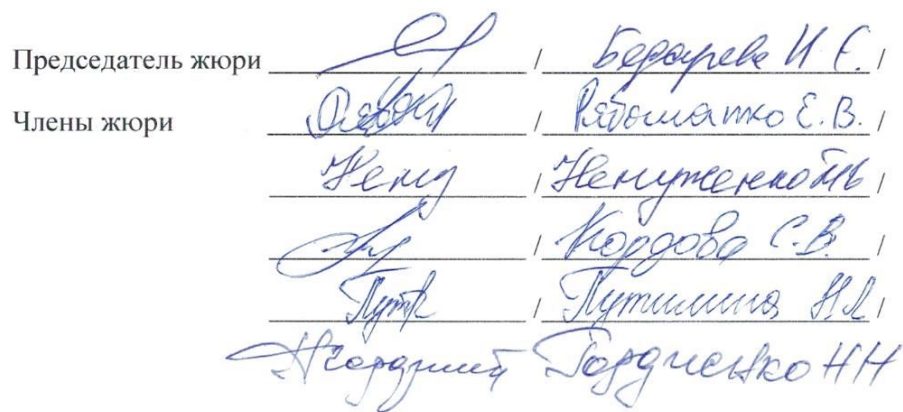 Председатель жюри / Бедарева И Е. /
Члены жюри / Рябошапко Е.В. /
/ Ненуженко ТВ /
/ Кордова С.В. /
/ Путилина Н.Л /
Гордиенко НН